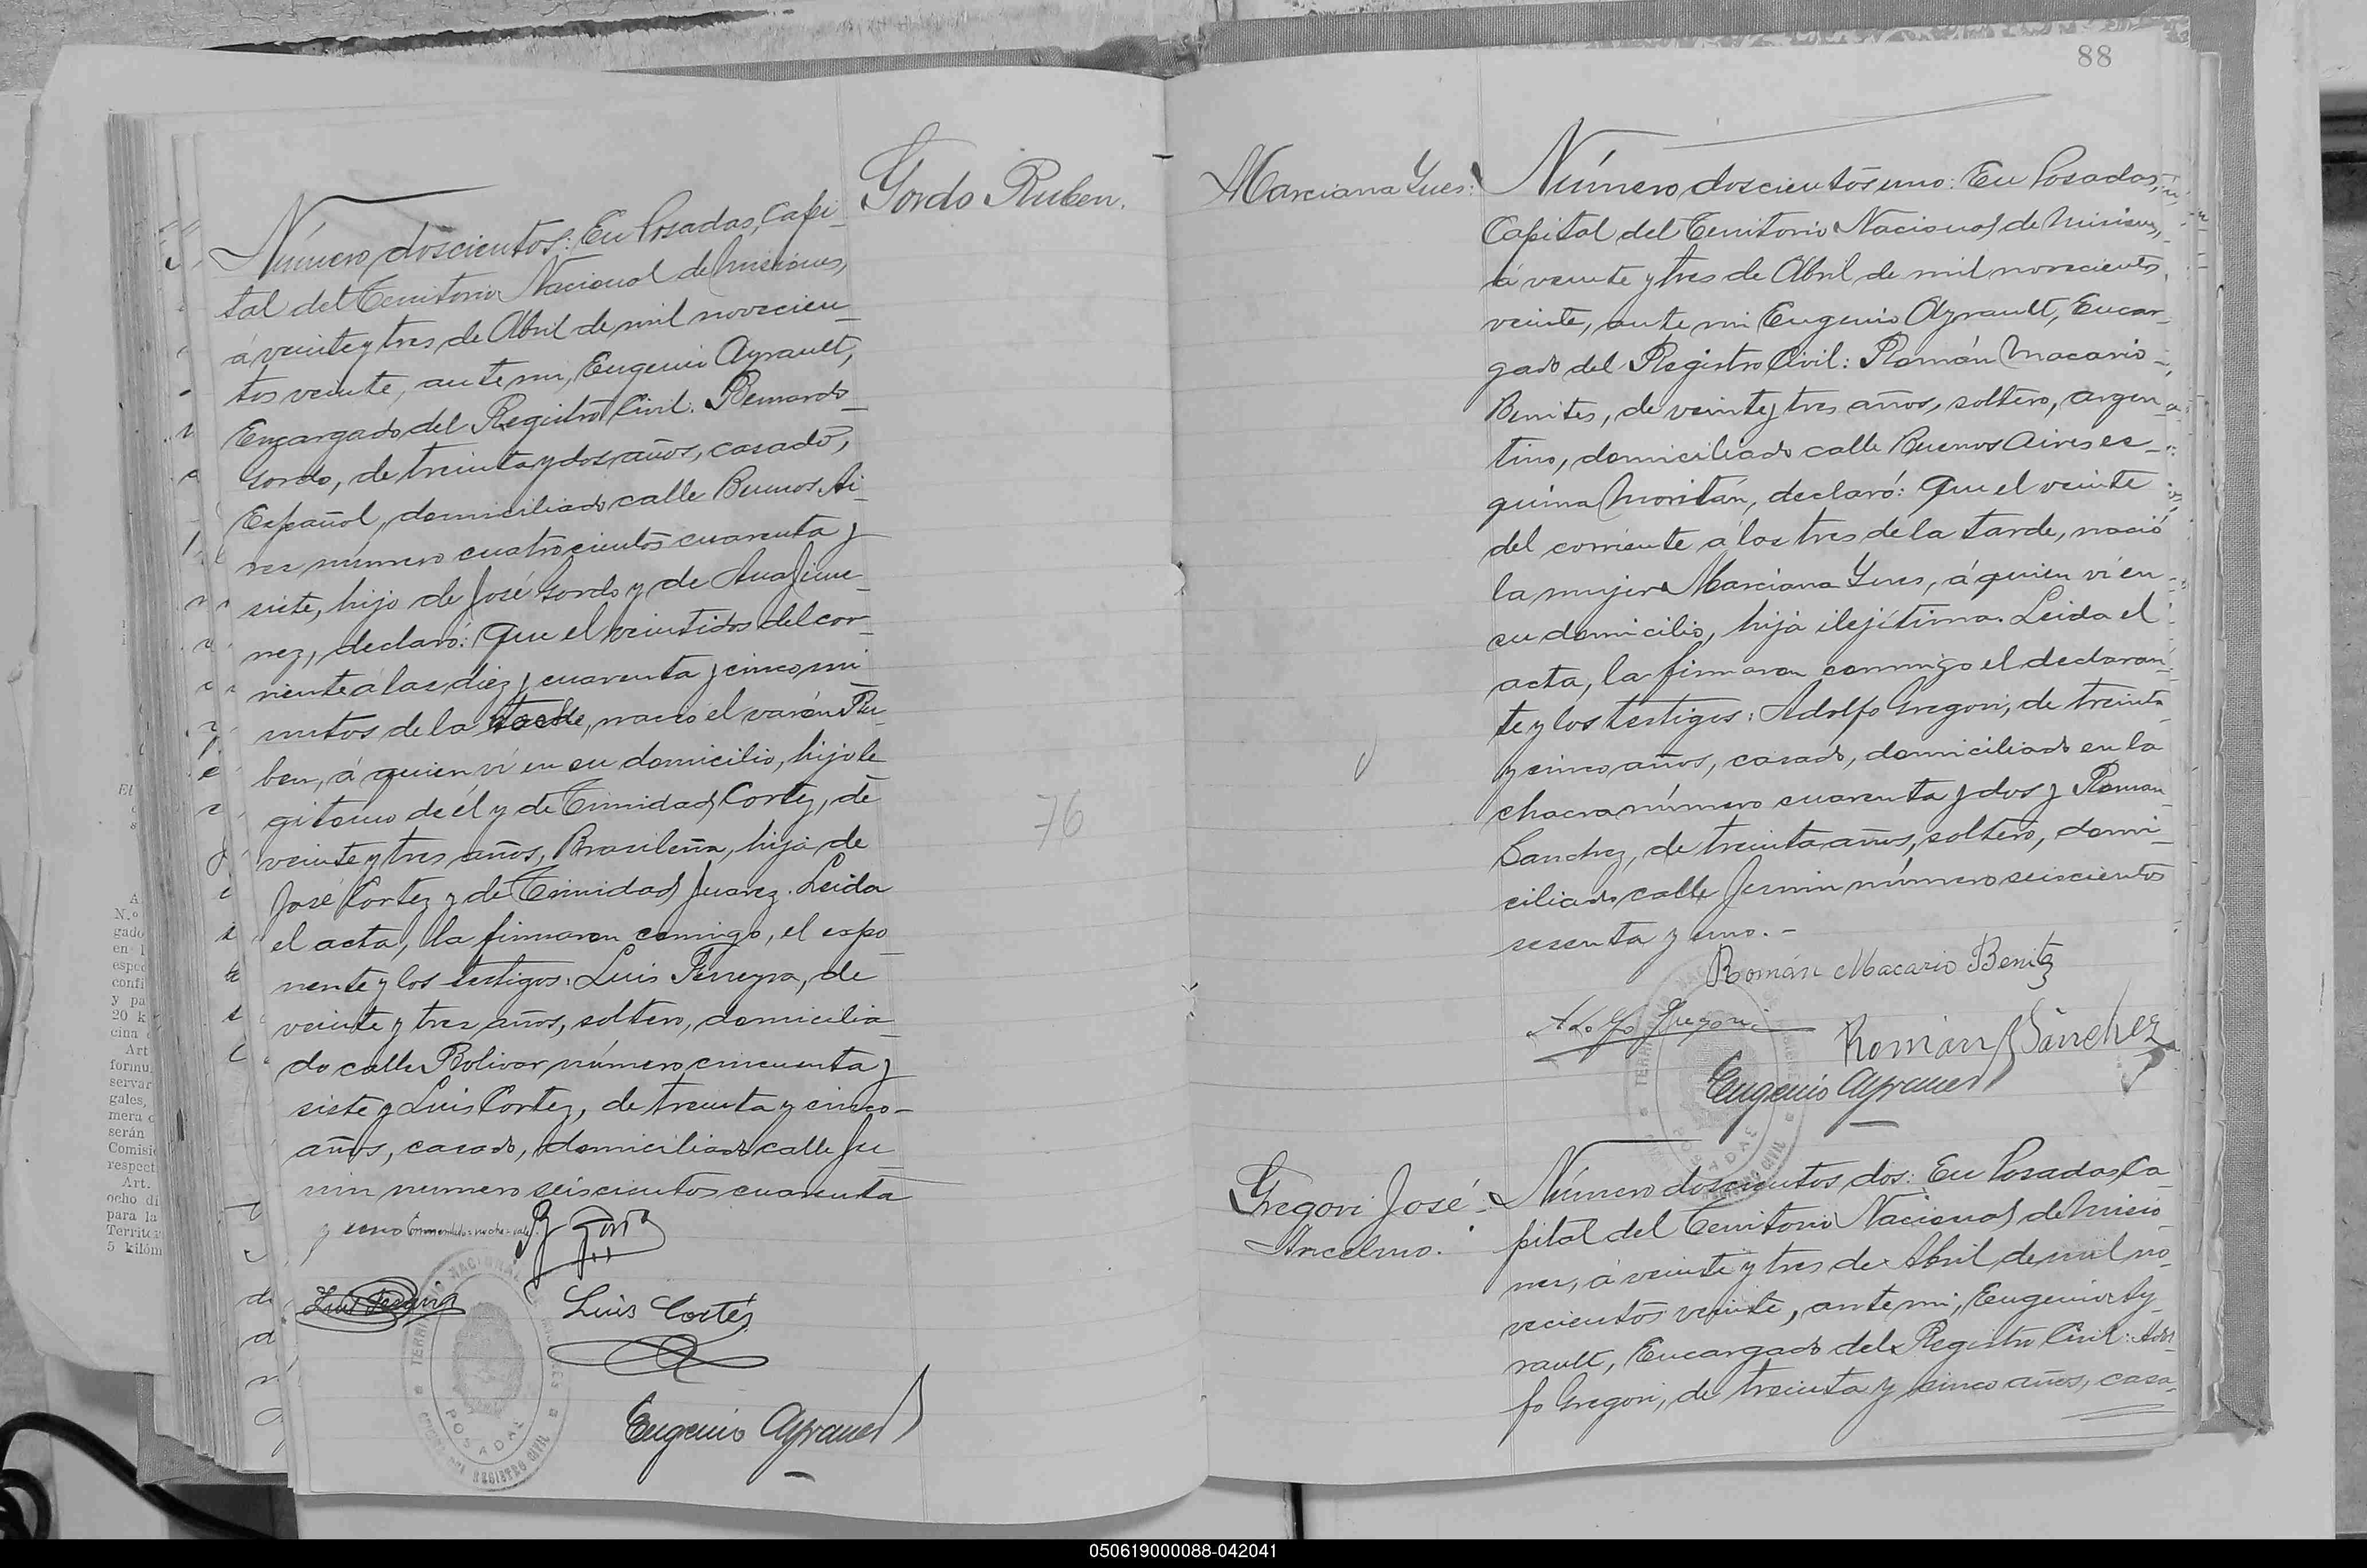 Gordo Ruben.
Número doscientos: En Posadas, Capi-
tal del Territorio Nacional de Misiones,
á veinte y tres de Abril de mil novecien-
tos veinte, ante mi, Eugenio Ayrault,
Encargado del Registro Civil: Bernardo
Gordo, de treinta y dos años, casado,
Español, domiciliado calle Buenos Ai-
res número cuatrocientos cuarenta y
siete, hijo de José Gordo y de Ana Jime-
nez, declaró: Que el veintidos del cor-
riente á las diez y cuarenta y cinco mi-
nutos de la noche, nació el varón Ru-
ben, á quien ví en su domicilio, hijo le-
gitomo de él y de Trinidad Cortez, de
veinte y tres años, Brasileña, hija de
José Cortez y de Trinidad Juarez. Leida
el acta, la firmaron comigo, el expo-
nente y los testigos: Luis Ferreyra, de
veinte y tres años, soltero, domicilia-
do calle Bolivar número cincuenta y
siete y Luis Cortez, de treinta y cinco-
años, casado, domiciliado calle Ju-
nin numero seiscientos cuarenta
y uno Enmendado=noche=vale.
Luis Cortés
Eugenio Ayrault
TERRITORIO NACIONAL DE MISIONES
POSADAS
REGISTRO CIVIL
76
88
Marciana Ynes:
Número doscientos uno: En Posadas,
Capital del Territorio Nacional de Misiones,
á veinte y tres de Abril de mil novecientos
veinte, ante mi Eugenio Ayrault, Encar-
gado del Registro Civil: Román Macario-
Benites, de veinte y tres años, soltero, argen-
tino, domiciliado calle Buenos Aires es-
quina Moritán, declaró: Que el veinte
del corriente á las tres de la tarde, nació
la mujer Marciana Ynes, á quien ví en
su domicilio, hija ilejítima. Leida el
acta, la firmaron conmigo el declaran-
te y los testigos: Adolfo Gregori, de treinta
y cinco años, casado, domiciliado en la
chacra número cuarenta y dos y Roman
Sanchez, de treinta años, soltero, domi-
ciliado calle Junin número seiscientos
sesenta y uno.-
Román Macario Benitez
Adolfo Gregori
Román Sánchez
Eugenio Ayrault
Gregori José
Ancelmo.
Número doscientos dos: En Posadas, Ca-
pital del Territorio Nacional de Misio-
nes, á veinte y tres de Abril de mil no-
vecientos veinte, ante mi, Eugenio Ay-
rault, Encargado del Registro Civil: Adol-
fo Gregori, de treinta y cinco años, casa-
050619000088-042041